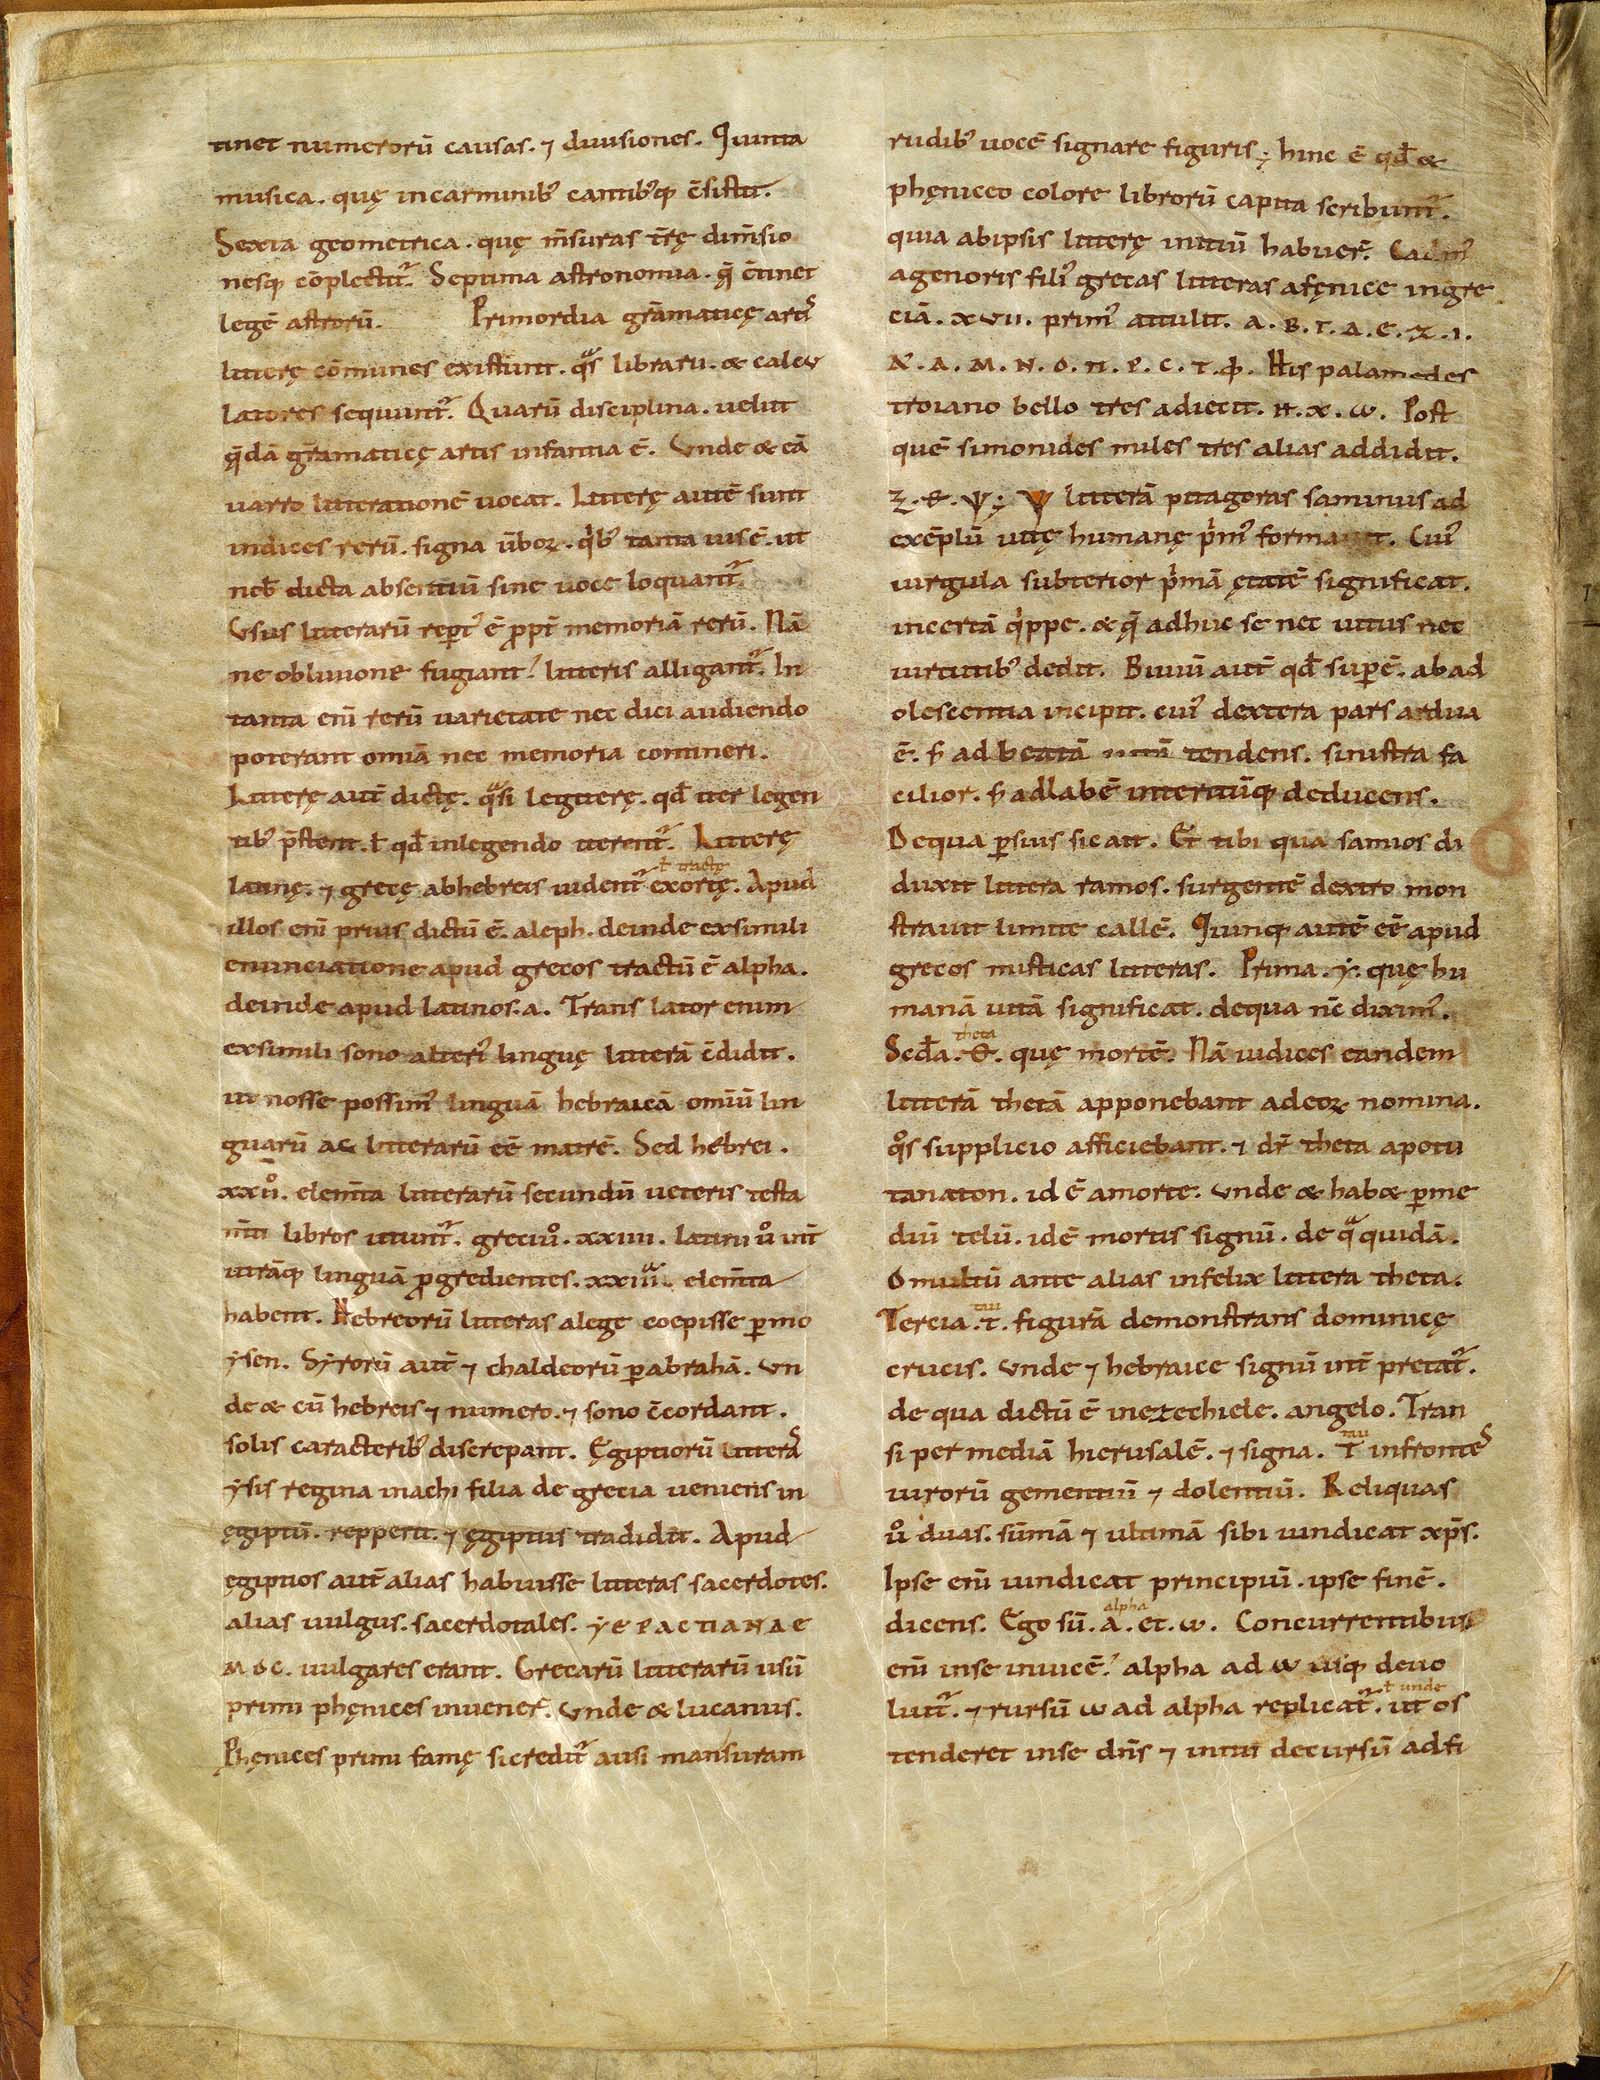 tinet numerorū causas. ⁊ diuisiones. Quinta
musica. quę incarminib' cantib'q; c̄sistit.
Sexta geometrica. quę m̄suras t̄rę dim̄sio
nesq; cōplectit᷑. Septima astronomia. q̄ c̄tinet
legē astrorū. Primordia grāmaticę arti͛
litterę cōmunes existunt. qͣs librarii. & calcu
latores sequunt᷑. Quarū disciplina. uelut
q̄dā grāmaticę artis infantia ē. Vnde & eā
uarro litterationē uocat. Litterę autē sunt
indices rerū. signa ūboꝝ. qⁱb' tanta uis ē. ut
nob̄ dicta absentiū sine uoce loquant᷑.
Vsus litterarū rep̄t' ē ꝓpt̄ memoriā rerū. Nā
ne obliuione fugiant. litteris alligant᷑. In
tanta eni̅ rerū uarietate nec dici audiendo
poterant omiā nec memoria contineri.
Litterę aut̄ dictę. qͣsi legiterę. qd̄ iter legen
tib' p̄stent. ł qd̄ inlegendo iterent᷑. Litterę
ł tractę
latinę. ⁊ grecę abhebreis uident᷑ exortę. Apud
illos eni̅ prius dictū ē. aleph. deinde exsimili
enunciatione apud grecos tractū ē alpha.
deinde apud latinos. a. Trans lator enim
exsimili sono alteri' linguę litterā c̄didit.
ut nosse possim' linguā hebraicā omiū lin
guarū ac litterarū eē matrē. Sed hebrei.
xxii̊. elem̄ta litterarū secundū ueteris testa
m̄ti libros utunt᷑. greciuͦ. xxiiii. latini uͦ int̄
utrāq; linguā ꝓgredientes. xxiii. elem̄ta
habent. Hebreorū litteras alege coepisse ꝑmo
ysen. Syrorū aut̄ ⁊ chaldeorū ꝑabrahā. Vn
de & cū hebreis ⁊ numero. ⁊ sono c̄cordant.
solis caracterib' discrepant. Ęgiptiorū littera͛
ysis regina inachi filia de grecia ueniens in
ęgiptū. repperit. ⁊ ęgiptiis tradidit. Apud
ęgiptios aut̄ alias habuisse litteras sacerdotes.
alias uulgus. sacerdotales. ΥΕΡΑCΤΙΑΝΑΕ
ΜΟC. uulgares erant. Grecarū litterarū usū
primi phęnices inuener̄. Vnde & lucanus.
Phęnices primi famę sicredit᷑ ausi mansuram
rudib' uocē signare figuris; hinc ē qd̄ &
phęniceo colore librorū capita scribunt᷑.
quia abipsis litterę initiū habuer̄. Cadm'
agenoris fili' grecas litteras afęnice ingre
ciā. xvii. prim' attulit. Α. Β. Γ. Δ. Ε. Ζ. Ι.
Κ. Λ. Μ. Ν. Ο. Π. Ρ. C. Τ. Φ. His palamedes
troiano bello tres adiecit. Η. Χ. ω. Post
quē simonides miles tres alias addidit.
Ζ. Θ. Ψ; Υ litterā pitagoras saminus ad
exēplū uitę humanę pⁱm' formauit. Cui'
uirgula subterior pⁱmā ętatē significat.
incertā qⁱppe. & q̄ adhuc se nec uitiis nec
uirtutib' dedit. Biuiū aut̄ qd̄ suꝑ ē. ab ad
olescentia incipit. cui' dextera pars ardua
ē. s̄ ad beatā uitā tendens. sinistra fa
cilior. s̄ adlabē interitūq; deducens.
Dequa ꝑsius sic ait. Et tibi qua samios di
duxit littera ramos. surgentē dextro mon
strauit limite callē. Quinq; autē eē apud
grecos misticas litteras. Prima. y. quę hu
manā uitā significat. dequa n̄c dixim'.
theta
Sc̄da. Θ. quę mortē. Nā iudices eandem
litterā thetā apponebant adeoꝝ nomina.
qͦs supplicio afficiebant. ⁊ dr̄ theta apotu
tanaton. id ē amorte. Vnde & hab& ꝑme
diū telū. idē mortis signū. de qͣ quidā.
O multū ante alias infelix littera theta.
tau
Tercia. T. figurā demonstrans dominicę
crucis. Vnde ⁊ hebraice signū int̄ pretat᷑.
de qua dictū ē inezechiele. angelo. Tran
tau
si per mediā hierusalē. ⁊ signa. T infronte͛
uirorū gementiū ⁊ dolentiū. Reliquas
uͦ duas. sūmā ⁊ ultimā sibi uindicat xp̄s.
Ipse eni̅ uindicat principiū. ipse finē.
alpha
dicens. Ego sū. a. et. ω. Concurrentibus
eni̅ inse inuicē. alpha ad ω usq; deuo
ł unde
luit᷑. ⁊ rursū ω ad alpha replicat᷑. ut os
tenderet inse dn̄s ⁊ initii decursū ad fi